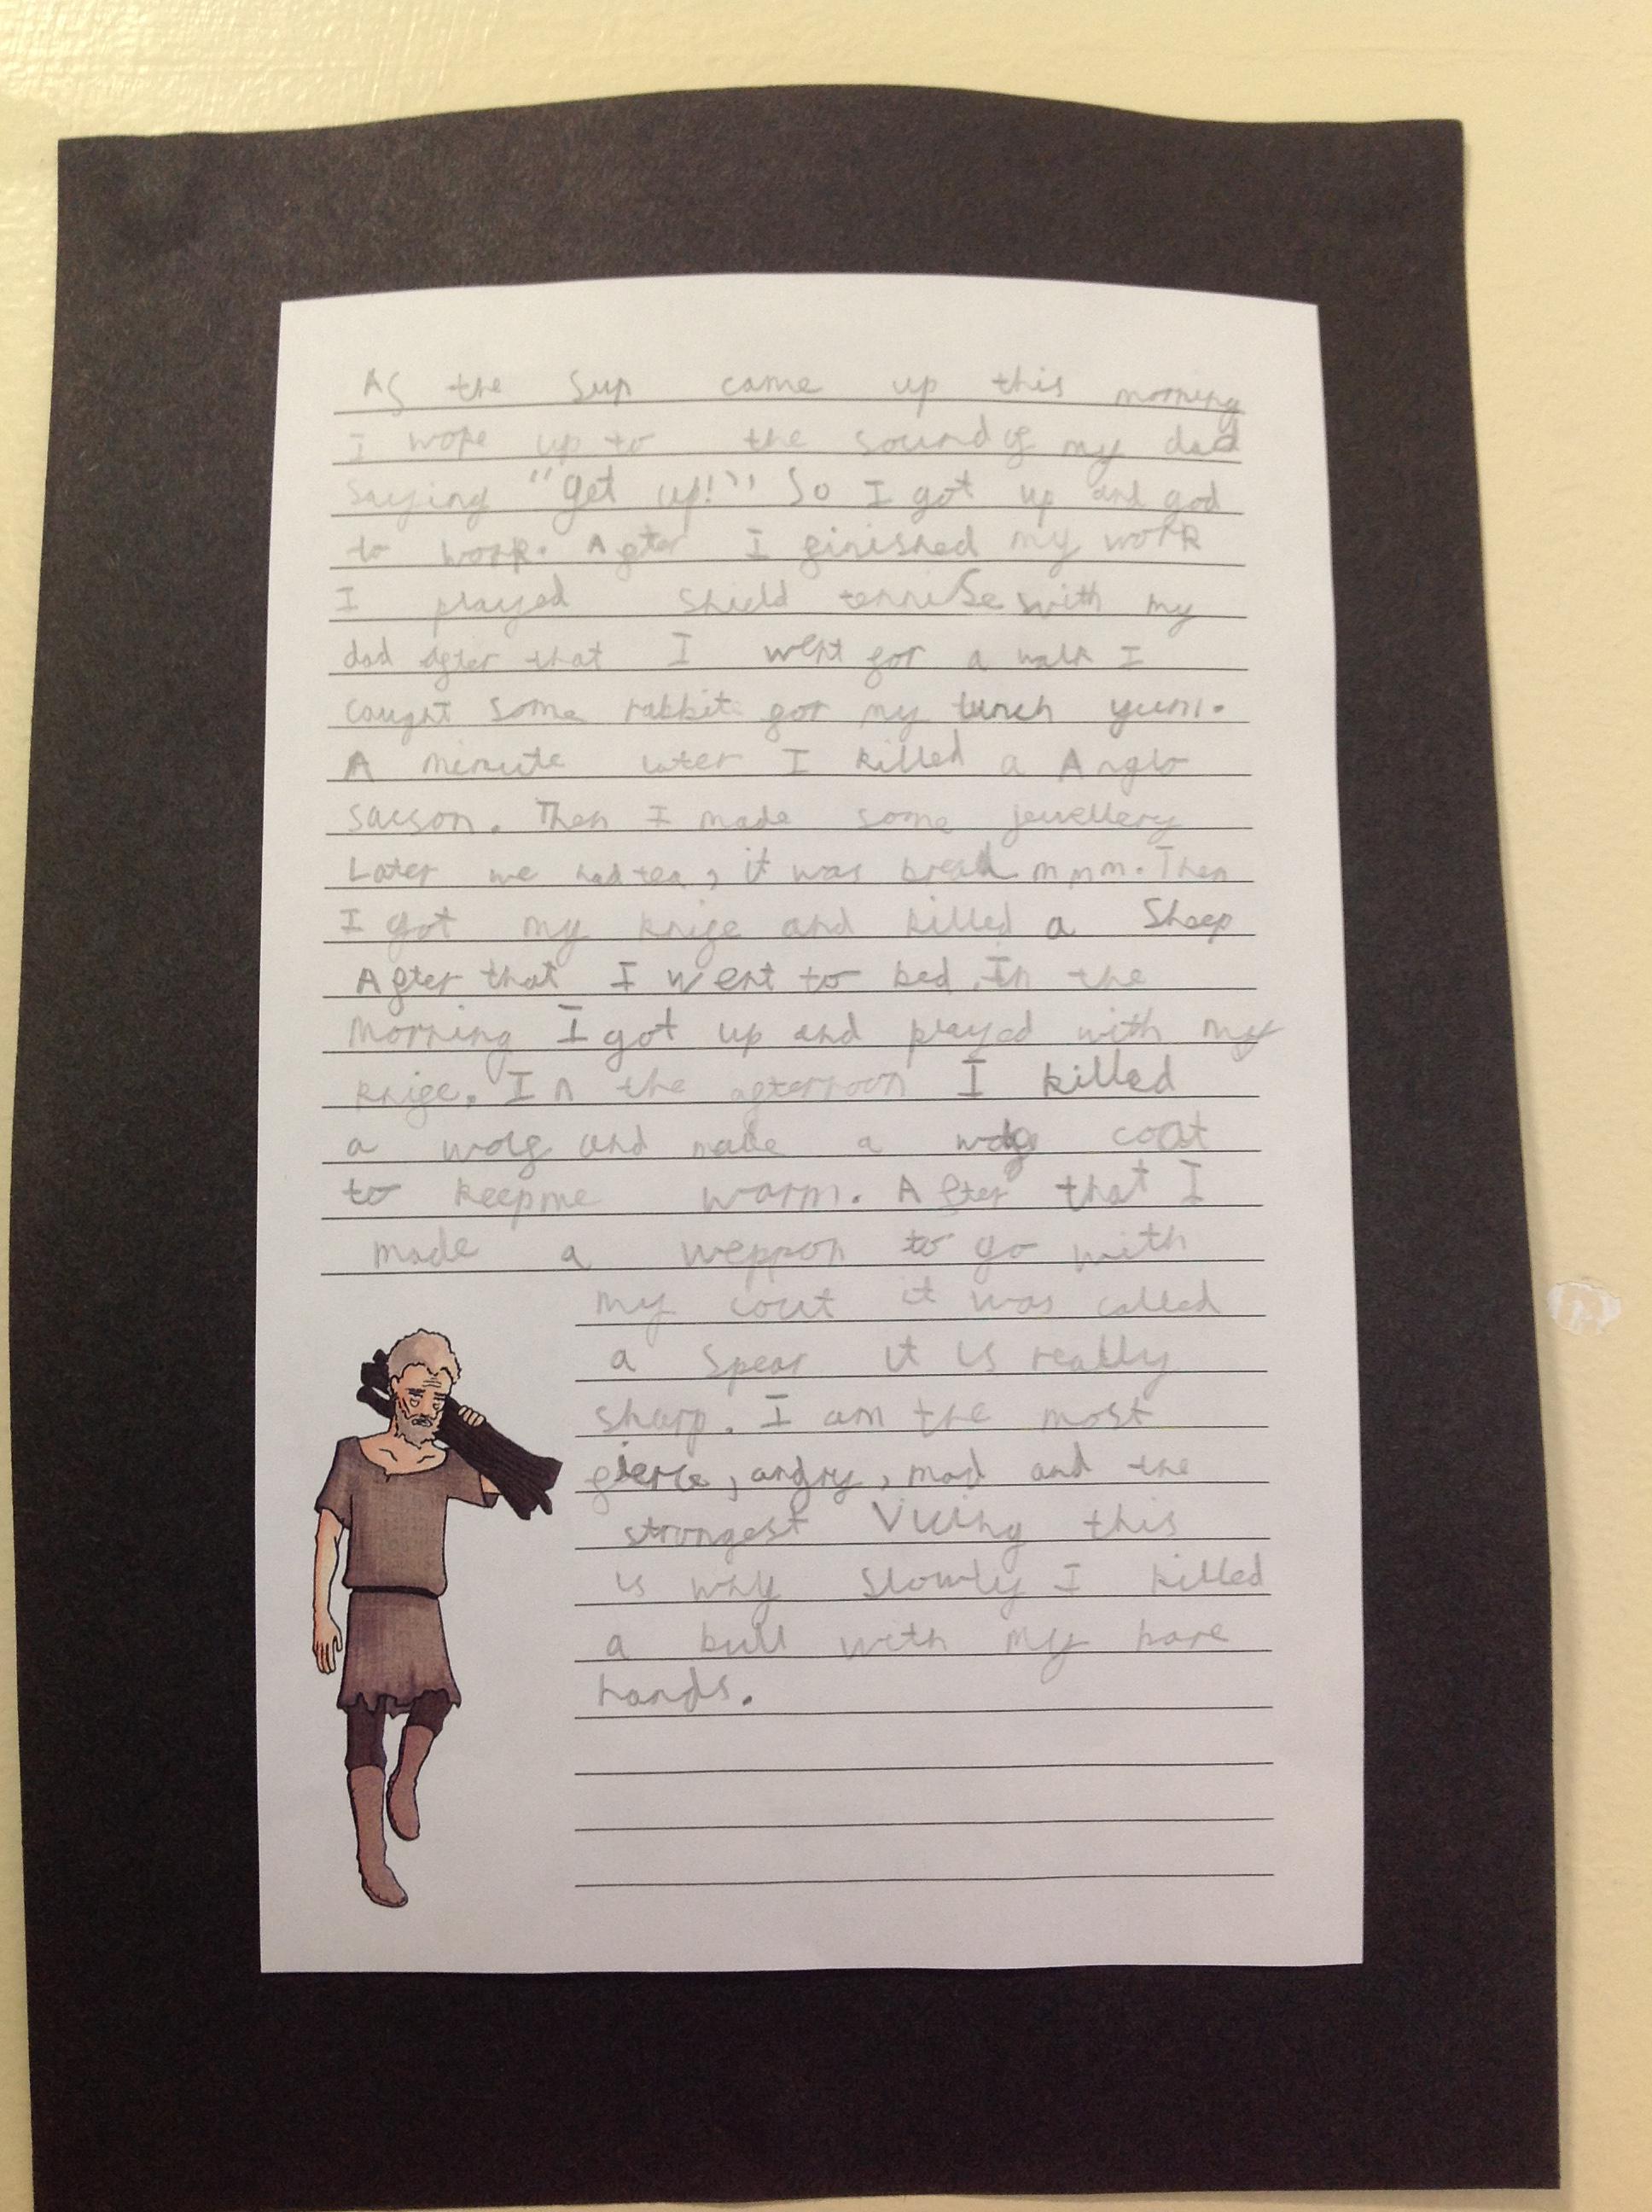 As the sun came up this morning
I woke up to the sound of my dad
saying "get up!" So I got up and god
to work. After I finished my work
I played shield tennise with my
dad after that I went for a walk I
caught some rabbit for my lunch yum.
A minute later I killed a Anglo
sacson. Then I made some jewellery
Later we had tea, it was bread mmm. Then
I got my knife and killed a Sheep
After that I went to bed. In the
morning I got up and played with my
knife. In the afternoon I killed
a wolf and made a wolf coat
to keep me warm. After that I
made a weppon to go with
my cout it was called
a spear it is really
sharp. I am the most
fierce, angry, mad and the
strongest Vicing this
is why slowly I killed
a bull with my bare
hands.